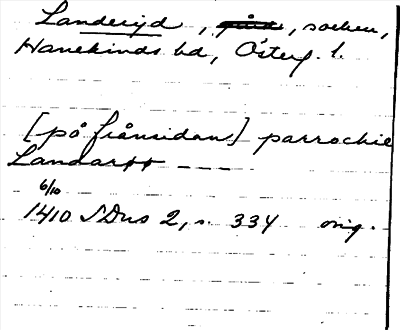 Landeryd, gård, socken,
Hanekinds hd, Österg. l.
[på frånsidan] parrochie
Landarýt ----
6/10
1410 SDns 2, s. 334 orig.